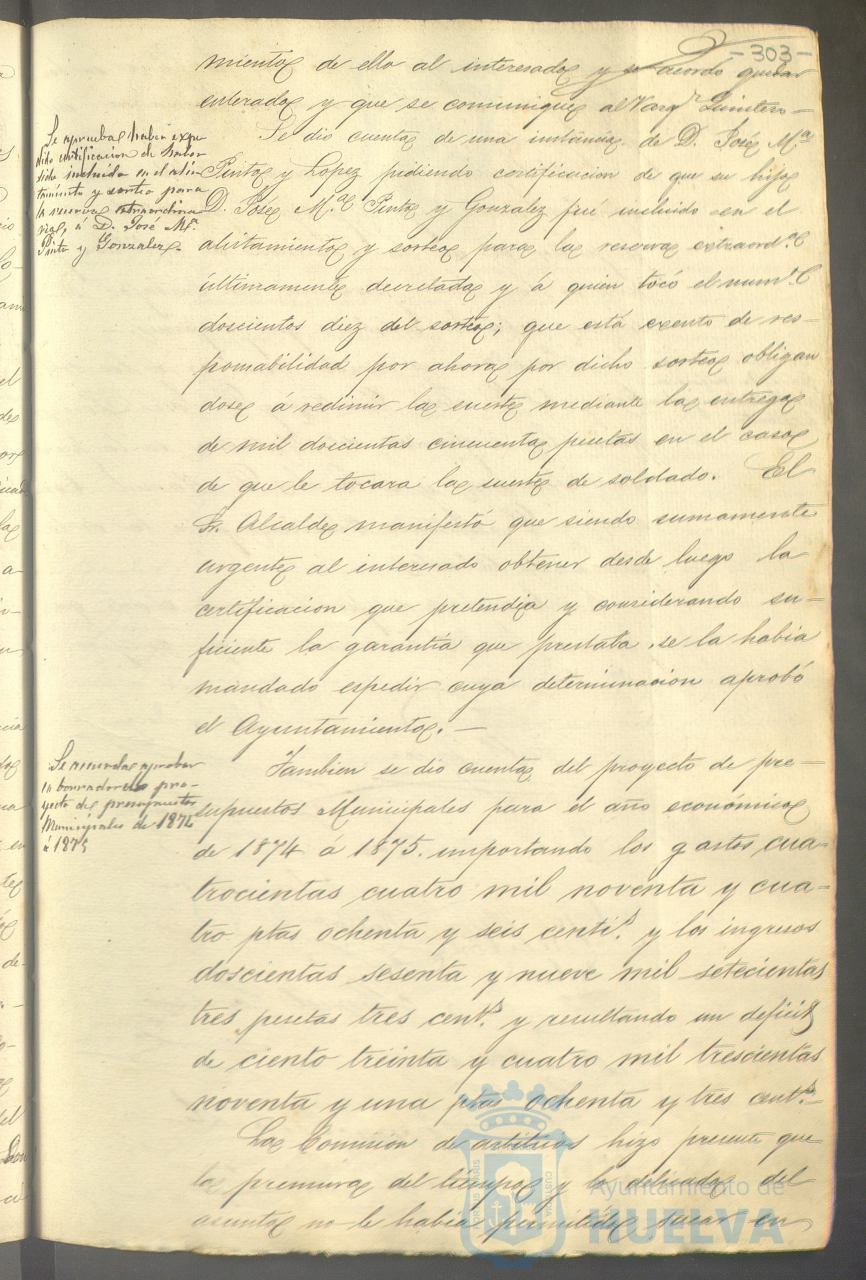 - 303 -
miento de ello al interesado y se acordo quedar
enterado y que se comunique al Varg.r Quintero-
Se aprueba haber expe-
dido certificacion de haber
sido incluido en el alis-
tamiento y sorteo para
la reserva extraordina
ria, a D. José M.ª
Pinto y Gonzalez.
Se dió cuenta de una instancia de D. José M.ª
Pinto y Lopez pidiendo certificacion de que su hijo
D. José M.ª Pinto y Gonzalez fué incluido en el
alistamiento y sorteo para la reserva extraord.ª
últimamente decretada y á quien tocó el num.º
doscientos diez del sorteo; que está exento de res-
ponsabilidad por ahora por dicho sorteo obligan
dose á redimir la suerte mediante la entrega
de mil doscientas cincuenta pesetas en el caso
de que le tocara la suerte de soldado. El
Sr. Alcalde manifestó que siendo sumamente
urgente al interesado obtener desde luego la
certificacion que pretendia y considerando su-
ficiente la garantía que prestaba se la habia
mandado espedir cuya determinacion aprobó
el Ayuntamiento. —
Se acuerda aprobar
la borrador del pro-
yecto de presupuestos
Municipales de 1874
á 1875
Tambien se dio cuenta del proyecto de pre-
supuestos Municipales para el año económico
de 1874 á 1875. importando los gastos cua-
trocientas cuatro mil noventa y cua-
tro ptas ochenta y seis centi.s y los ingresos
doscientas sesenta y nueve mil setecientas
tres pesetas tres cent.s y resultando un deficit
de ciento treinta y cuatro mil trescientas
noventa y una pta ochenta y tres cent.s-
La Comision de arbitrios hizo presente que
la premura del tiempo y lo delicado del
asunto no le habia permitido sacar en
Ayuntamiento de
HUELVA